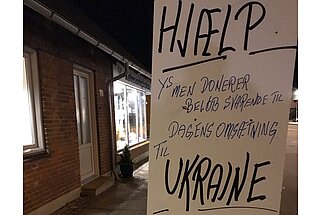 HJÆLP
YS MEN DONERER
BELØB SVARENDE TIL
DAGENS OMSÆTNING
TIL
UKRAINE